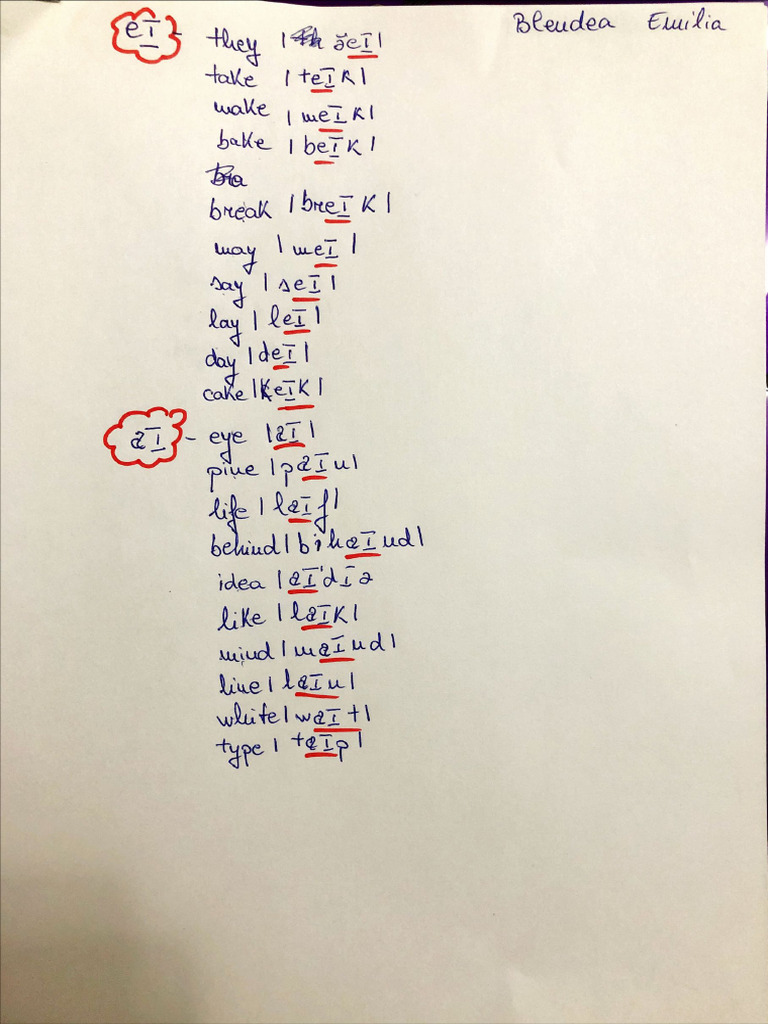 Blendea Emilia
eɪ - they | ðeɪ |
take | teɪk |
make | meɪk |
bake | beɪk |
break | breɪk |
way | weɪ |
say | seɪ |
lay | leɪ |
day | deɪ |
cake | keɪk |
aɪ - eye | aɪ |
pine | paɪn |
life | laɪf |
behind | bihaɪnd |
idea | aɪ'dɪə
like | laɪk |
mind | maɪnd |
line | laɪn |
white | waɪt |
type | taɪp |